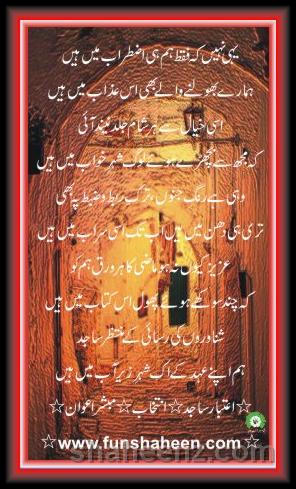 یہی نہیں کہ فقط ہم ہی اضطراب میں ہیں
ہمارے بھولنے والے بھی اس عذاب میں ہیں
اسی خیال سے ہر شام جلد نیند آئی
کہ مجھ سے بچھڑے ہوئے لوگ شہرِ خواب میں ہیں
وہی ہے رنگِ جنوں ، ترکِ ربط و ضبط پہ بھی
تری ہی دھن میں ہیں اب تک اسی سراب میں ہیں
عزیز کیوں نہ ہو ماضی کا ہر ورق ہم کو
کہ چند سوکھے ہوئے پھول اس کتاب میں ہیں
شناوروں کی رسائی کے منتظر ساجد
ہم اپنے عہد کے اک شہرِ زیرِ آب میں ہیں
☆اعتبار ساجد☆انتخاب☆مبشر اعوان☆
☆ www.funshaheen.com ☆
shaheenz.com